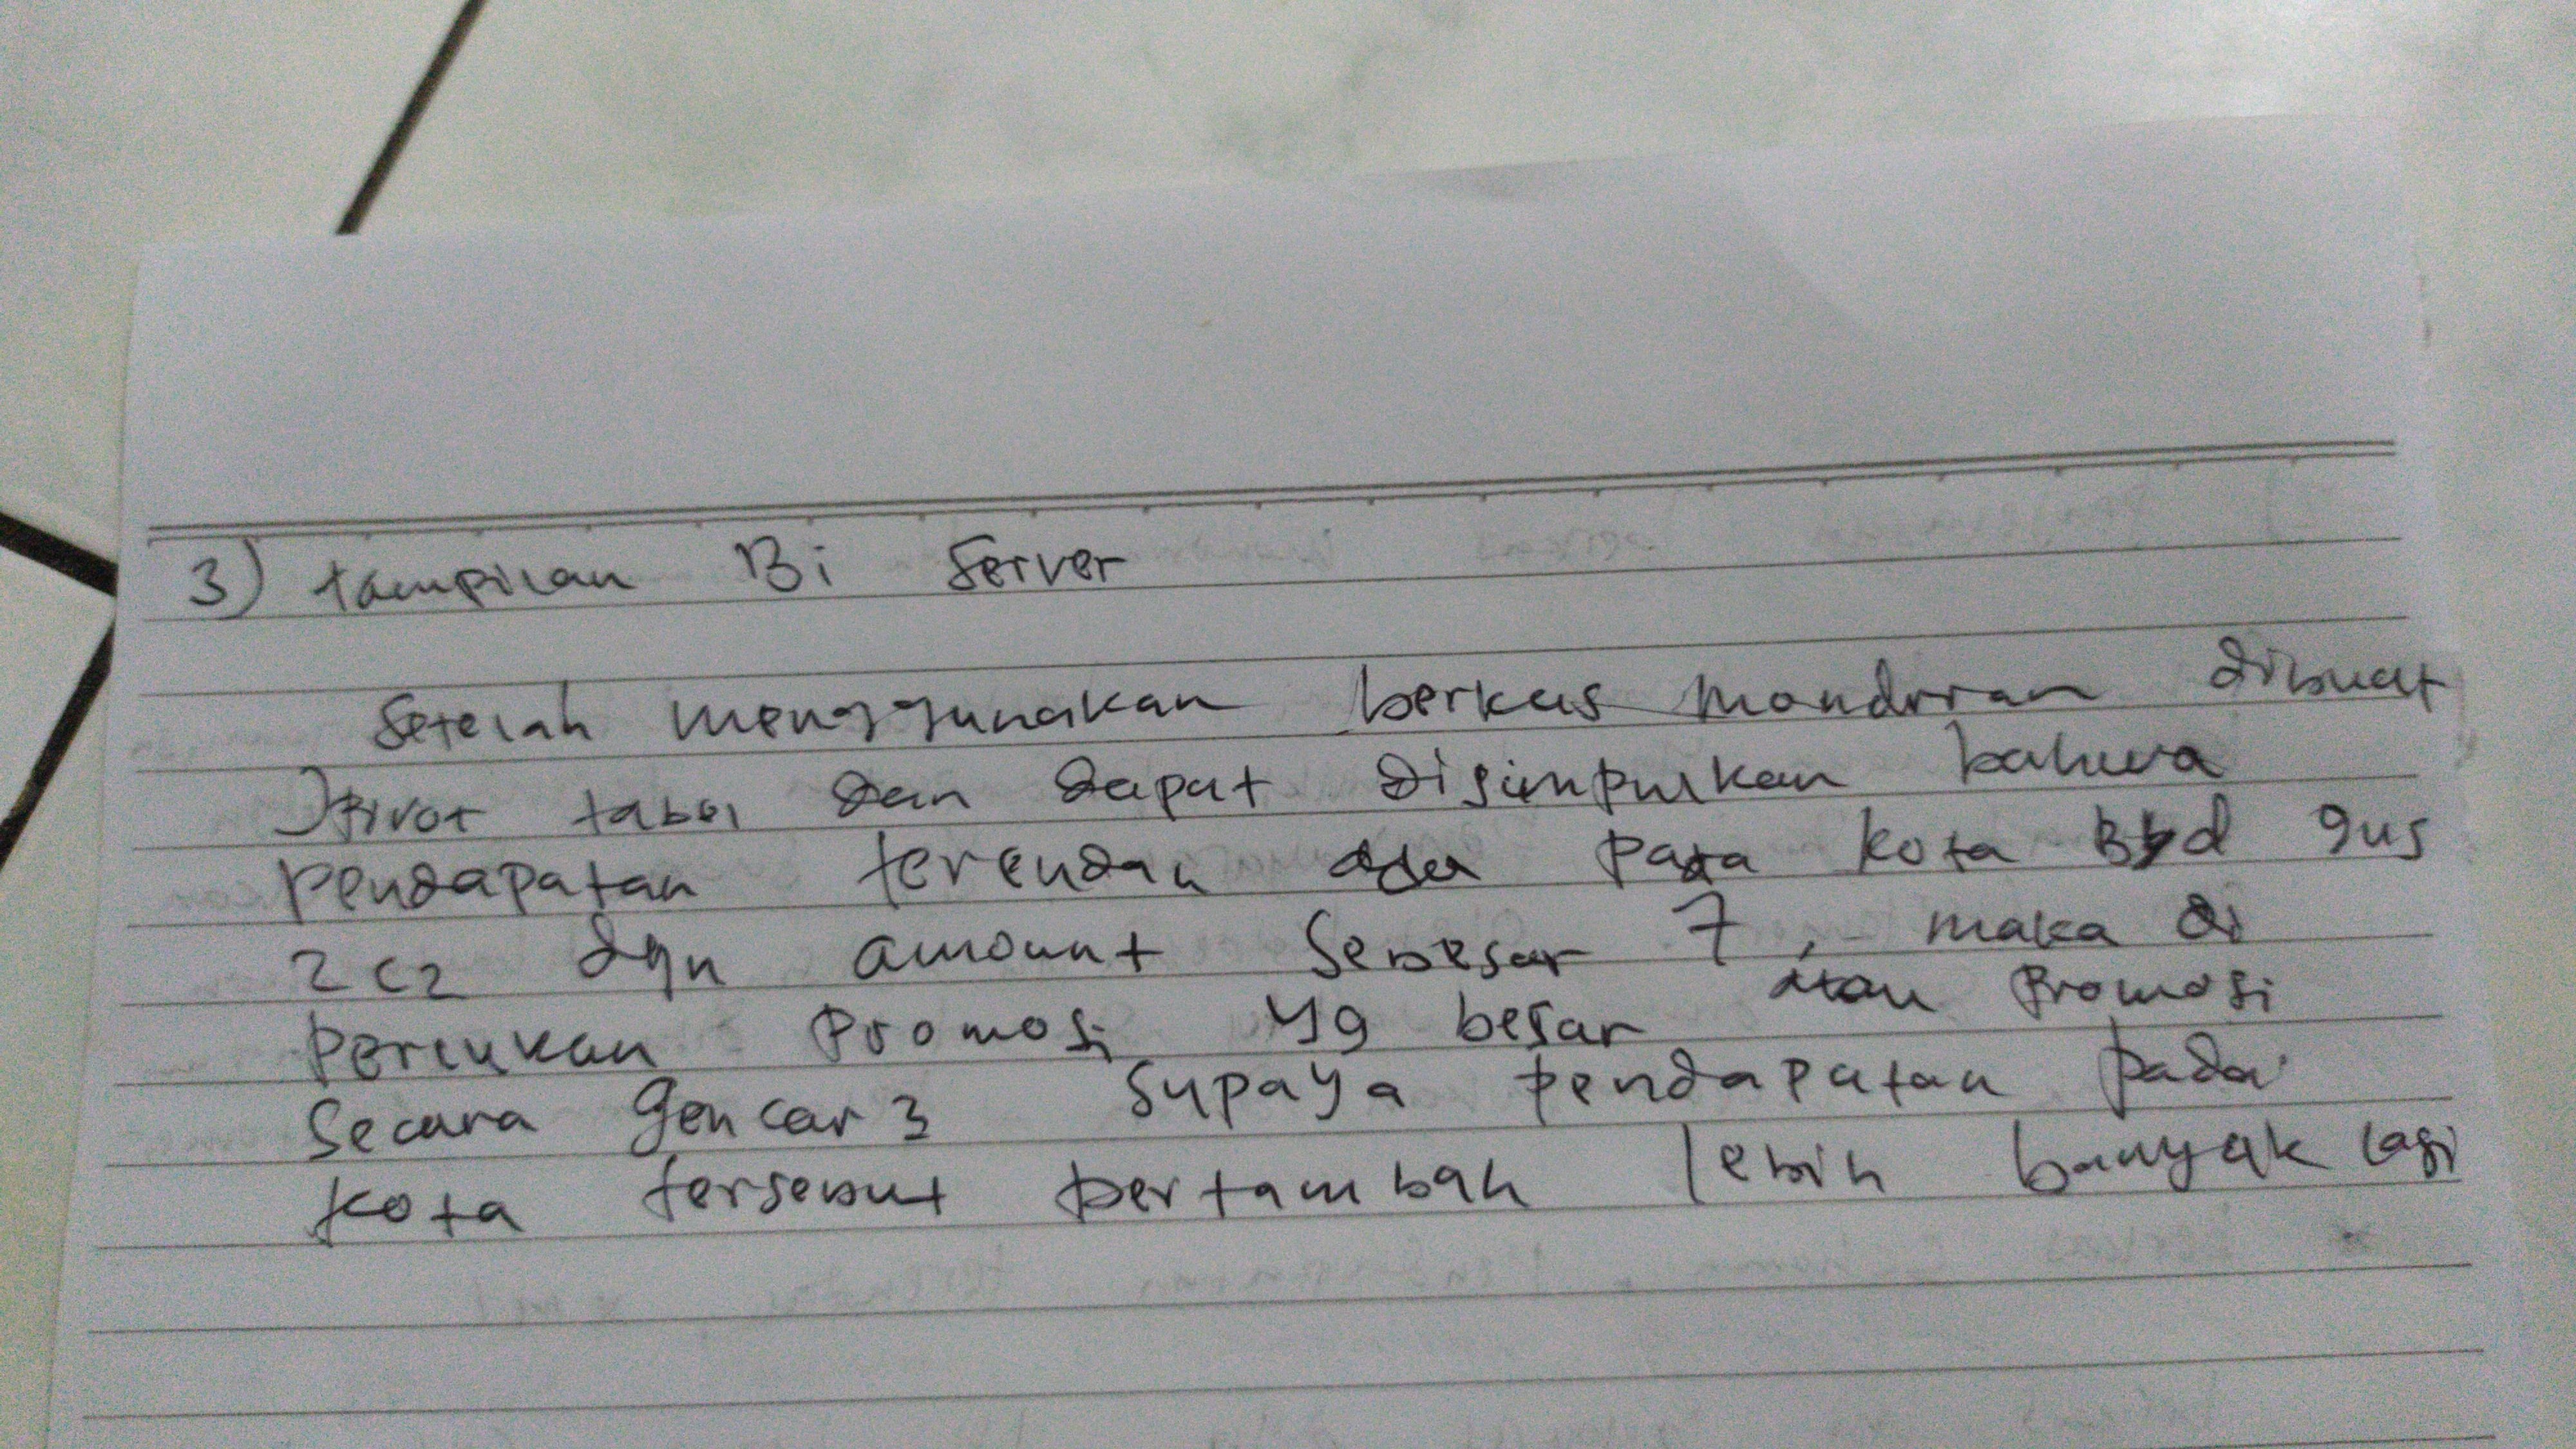 3) tampilan Bi Server
Setelah menggunakan berkas Mondrian dibuat
Pivot tabel dan dapat disimpulkan bahwa
Pendapatan terendah ada pada kota
dgn amount sebesar 7, maka di
perlukan promosi yg besar atau promosi
secara gencar2 supaya pendapatan pada
kota tersebut bertambah lebih banyak lagi